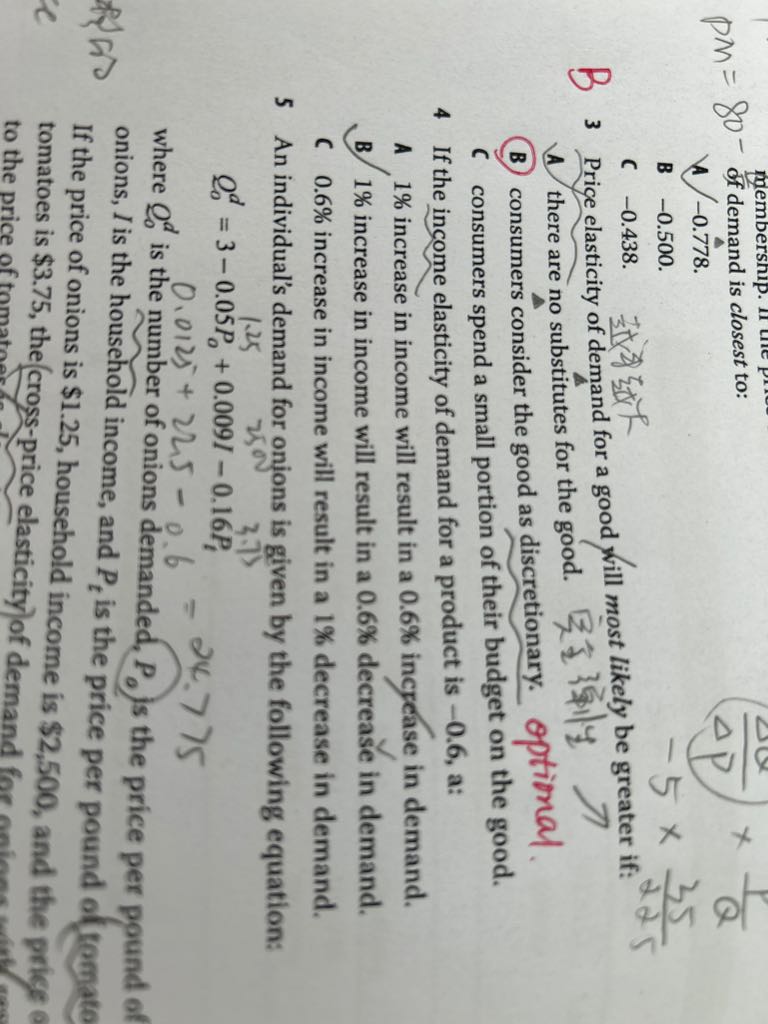 membership. If the
PM = 80 -
of demand is closest to:
A -0.778.
B -0.500.
C -0.438.
ΔQ/ΔP × P/Q
-5 × 35/225
B
3 Price elasticity of demand for a good will most likely be greater if:
A there are no substitutes for the good.
B consumers consider the good as discretionary. optional.
C consumers spend a small portion of their budget on the good.
4 If the income elasticity of demand for a product is -0.6, a:
A 1% increase in income will result in a 0.6% increase in demand.
B 1% increase in income will result in a 0.6% decrease in demand.
C 0.6% increase in income will result in a 1% decrease in demand.
5 An individual's demand for onions is given by the following equation:
1.25 2500 3.75
Qᵈₒ = 3 - 0.05Pₒ + 0.009I - 0.16Pₜ
0.0125 + 22.5 - 0.6 = 24.775
where Qᵈₒ is the number of onions demanded, Pₒ is the price per pound of
onions, I is the household income, and Pₜ is the price per pound of tomato
If the price of onions is $1.25, household income is $2,500, and the price o
tomatoes is $3.75, the cross-price elasticity of demand for onions with
to the price of tomatoes is